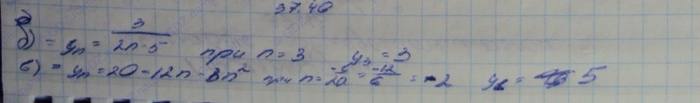 37.40
б) = yₙ = 3/(2n-5) при n = 3 y₃ = 3
в) = yₙ = 20 - 12n - 3n² при n = = -12/6 = -2 y = 5